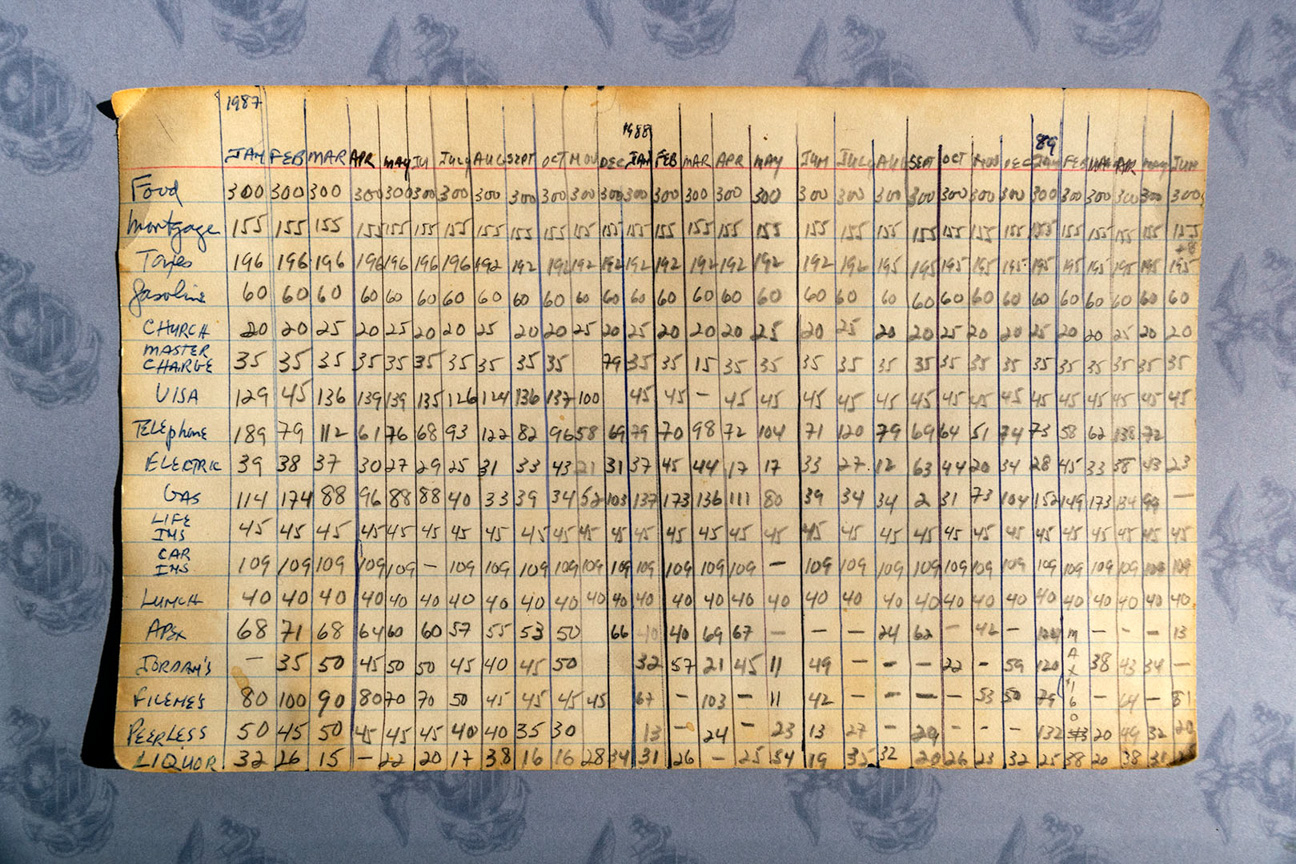 1987
1988
89
JAN FEB MAR APR MAY JU JULY AUG SEPT OCT NOV DEC JAN FEB MAR APR MAY JUN JULY AUG SEPT OCT NOV DEC JAN FEB MAR APR MAY JUN
Food 300 300 300 300 300 300 300 300 300 300 300 300 300 300 300 300 300 300 300 300 300 300 300 300 300 300 300 300 300 300
Mortgage 155 155 155 155 155 155 155 155 155 155 155 155 155 155 155 155 155 155 155 155 155 155 155 155 155 155 155 155 155
Taxes 196 196 196 196 196 196 196 192 192 192 192 192 192 192 192 192 192 192 195 195 195 195 195 195 195 195 195 195 195
Gasoline 60 60 60 60 60 60 60 60 60 60 60 60 60 60 60 60 60 60 60 60 60 60 60 60 60 60 60 60 60 60
CHURCH 20 20 25 20 25 20 20 25 20 20 25 20 25 20 20 20 25 20 25 20 20 25 20 20 25 20 20 25 20 20
MASTER
CHARGE 35 35 35 35 35 35 35 35 35 35 79 35 35 15 35 35 35 35 35 35 35 35 35 35 35 35 35 35 35
VISA 129 45 136 139 139 135 126 124 136 137 100 45 45 - 45 45 45 45 45 45 45 45 45 45 45 45 45 45 45
TELEphone 189 79 112 61 76 68 93 122 82 96 58 69 79 70 98 72 104 71 120 79 69 64 51 74 73 58 62 138 72
ELECTRIC 39 38 37 30 27 29 25 31 33 43 21 31 37 45 44 17 17 33 27 12 63 44 20 34 28 45 33 38 43 23
GAS 114 174 88 96 88 88 40 33 39 34 52 103 137 173 136 111 80 39 34 34 2 31 73 104 152 149 173 134 99 -
LIFE
INS 45 45 45 45 45 45 45 45 45 45 45 45 45 45 45 45 45 45 45 45 45 45 45 45 45 45 45 45 45 45
CAR
INS 109 109 109 109 109 - 109 109 109 109 109 109 109 109 109 109 - 109 109 109 109 109 109 109 109 109 109 109 109 109
LUNCH 40 40 40 40 40 40 40 40 40 40 40 40 40 40 40 40 40 40 40 40 40 40 40 40 40 40 40 40 40 40
APEX 68 71 68 64 60 60 57 55 53 50 66 40 40 69 67 - - - 24 62 - 42 - - - - 13
JORDAN'S - 35 50 45 50 50 45 40 45 50 32 57 21 45 11 49 - - - 22 - 59 120 38 43 34 -
FILENES 80 100 90 80 70 70 50 45 45 45 45 67 - 103 - 11 42 - - - - 53 50 79 - 64 - 51
PEERLESS 50 45 50 45 45 45 40 40 35 30 13 - 24 - 23 13 27 - 29 - - - 132 20 49 32 20
LIQUOR 32 26 15 - 22 20 17 38 16 16 28 34 31 26 - 25 54 19 32 32 20 26 23 32 25 38 20 38